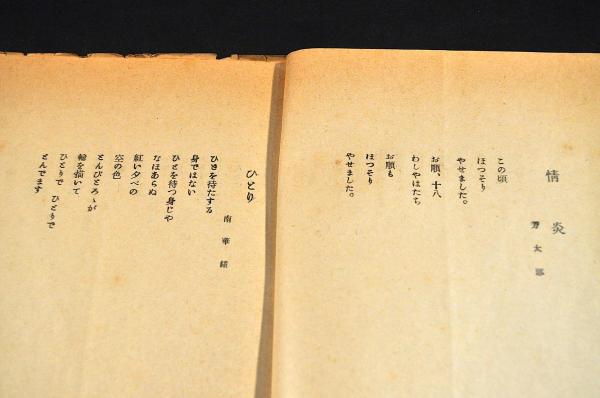 情炎
芳太郎
この頃
ほつそり
やせました。
お順、十八
わしやはたち
お順も
ほつそり
やせました。
ひとり
南華緒
ひとを待たする
身ではない
ひとを待つ身じや
なほあらぬ
紅い夕べの
空の色
とんびとろゝが
輪を描いて
ひとりで ひとりで
とんでます